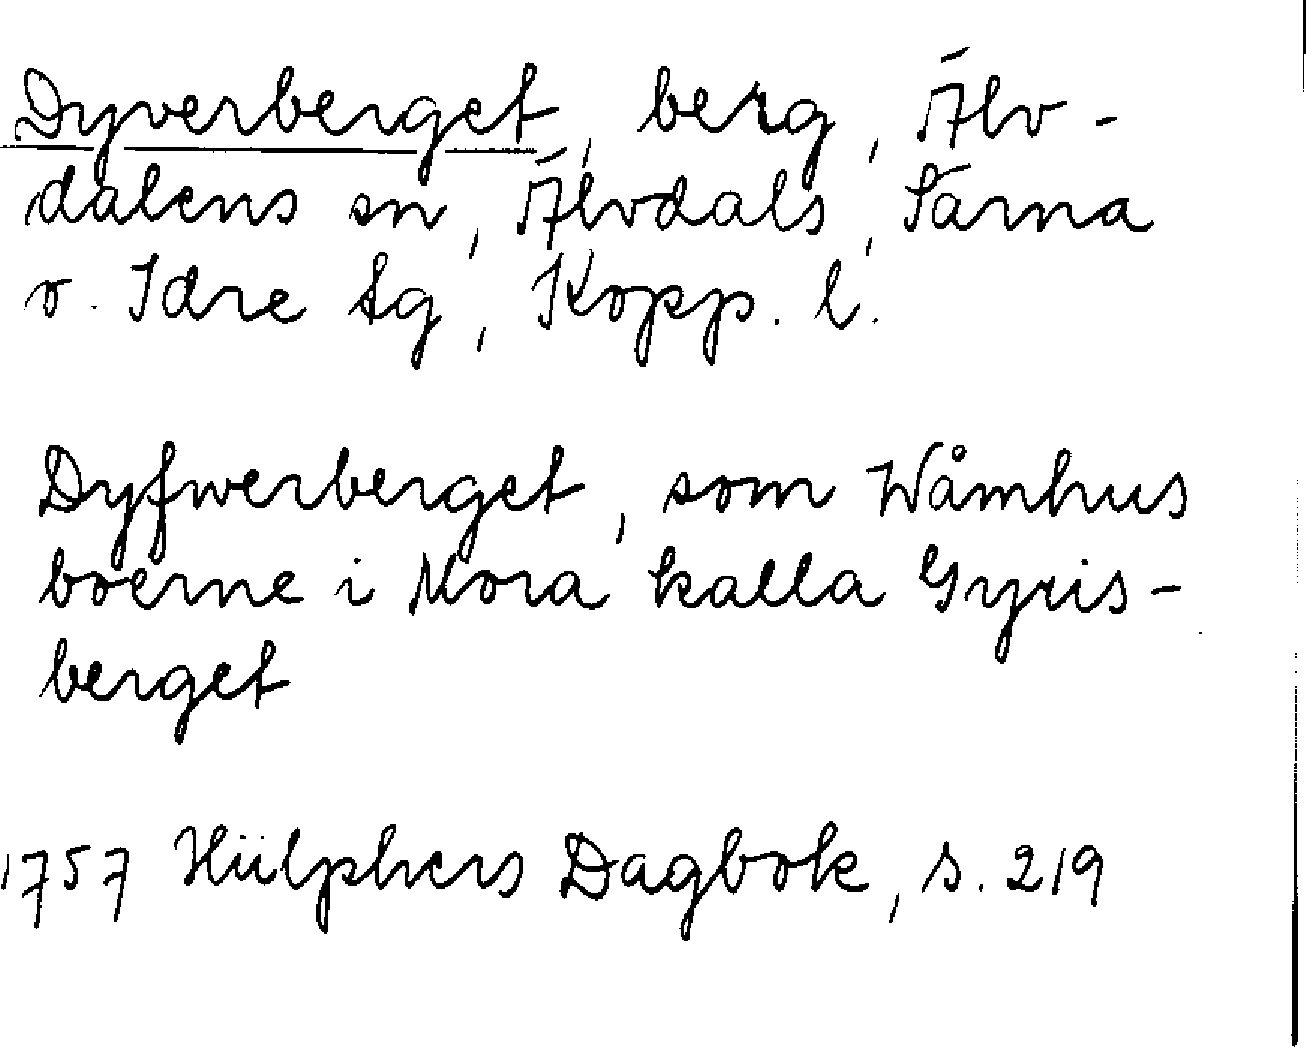 Dyverberget, berg, Älv-
dalens sn, Älvdals, Särna
o. Idre tg, Kopp. l.
Dyfwerberget, som Wåmhus
boerne i Mora kalla Gyris-
berget
1757 Hülphers Dagbok, s. 219